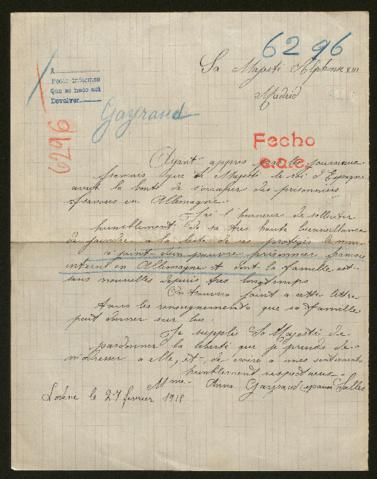 6296
A
Pedir informes
Que se hado acá
Devolver
Sa Majesté Alphonse XIII
Madrid
Gayraud
6296
Fecho
Ayant appris par les journaux
français que Sa Majesté le roi d'Espagne
avait la bonté de s'occuper des prisonniers
français en Allemagne.
J'ai l'honneur de solliciter
humblement de sa très haute bienveillance
de joindre à la liste de ses protégés le nom
ci-joint d'un pauvre prisonnier français
interné en Allemagne et dont la famille est
sans nouvelles depuis très longtemps
On trouvera joint a cette lettre
tous les renseignements que sa famille
peut donner sur lui.
Je supplie Sa Majesté de
pardonner la liberté que je prends de
m'adresser à elle, et de croire à mes sentiments
humblement respectueux.
Mme Anna Gayraud
le 27 février 1918